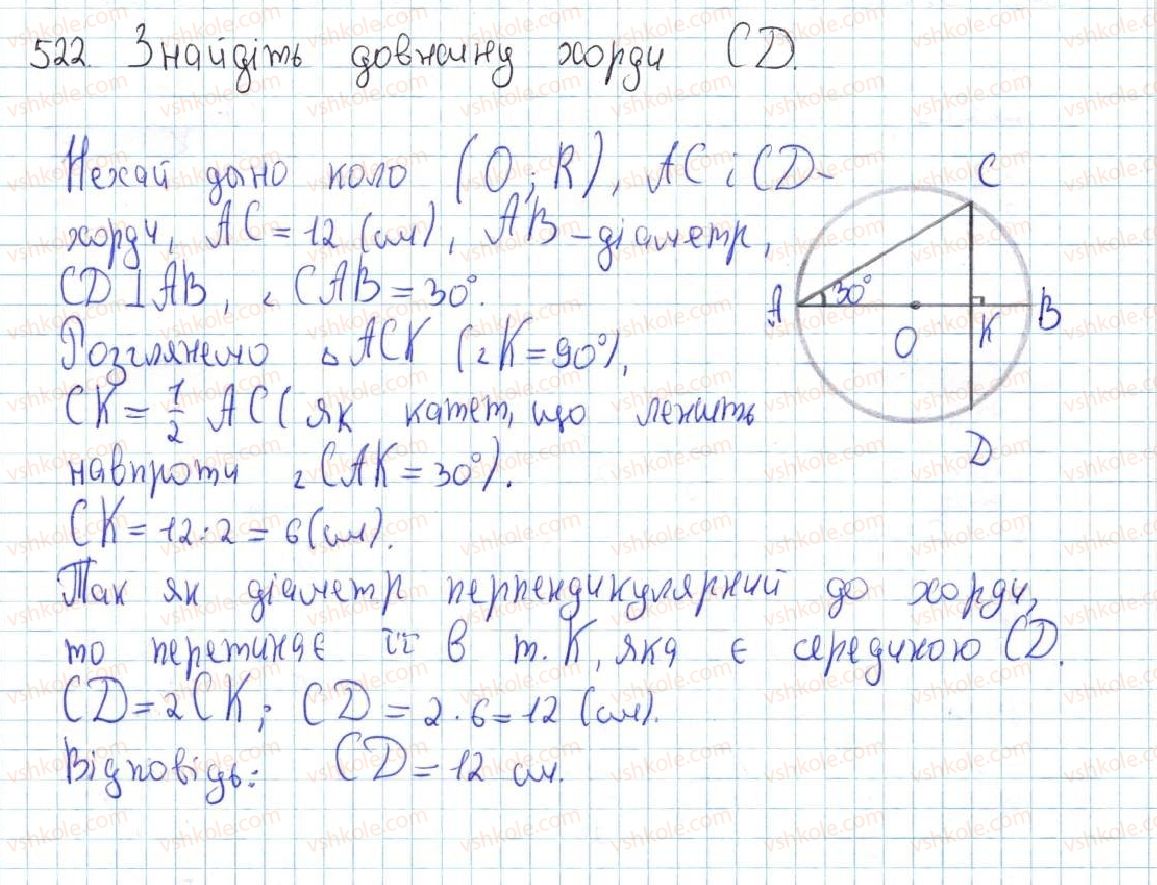 522. Знайдіть довжину хорди CD.
Нехай дано коло (O; R), AC і CD -
хорди, AC = 12 (см), AB - діаметр,
CD ⊥ AB, ∠CAB = 30°.
Розглянемо △ACK (∠K = 90°),
CK = 1/2 AC (як катет, що лежить
навпроти ∠CAK = 30°).
CK = 12 : 2 = 6 (см).
Так як діаметр перпендикулярний до хорди,
то перетинає її в т. K, яка є серединою CD.
CD = 2CK; CD = 2 · 6 = 12 (см).
Відповідь: CD = 12 см.
C
A
30°
O
K
B
D
vshkole.com